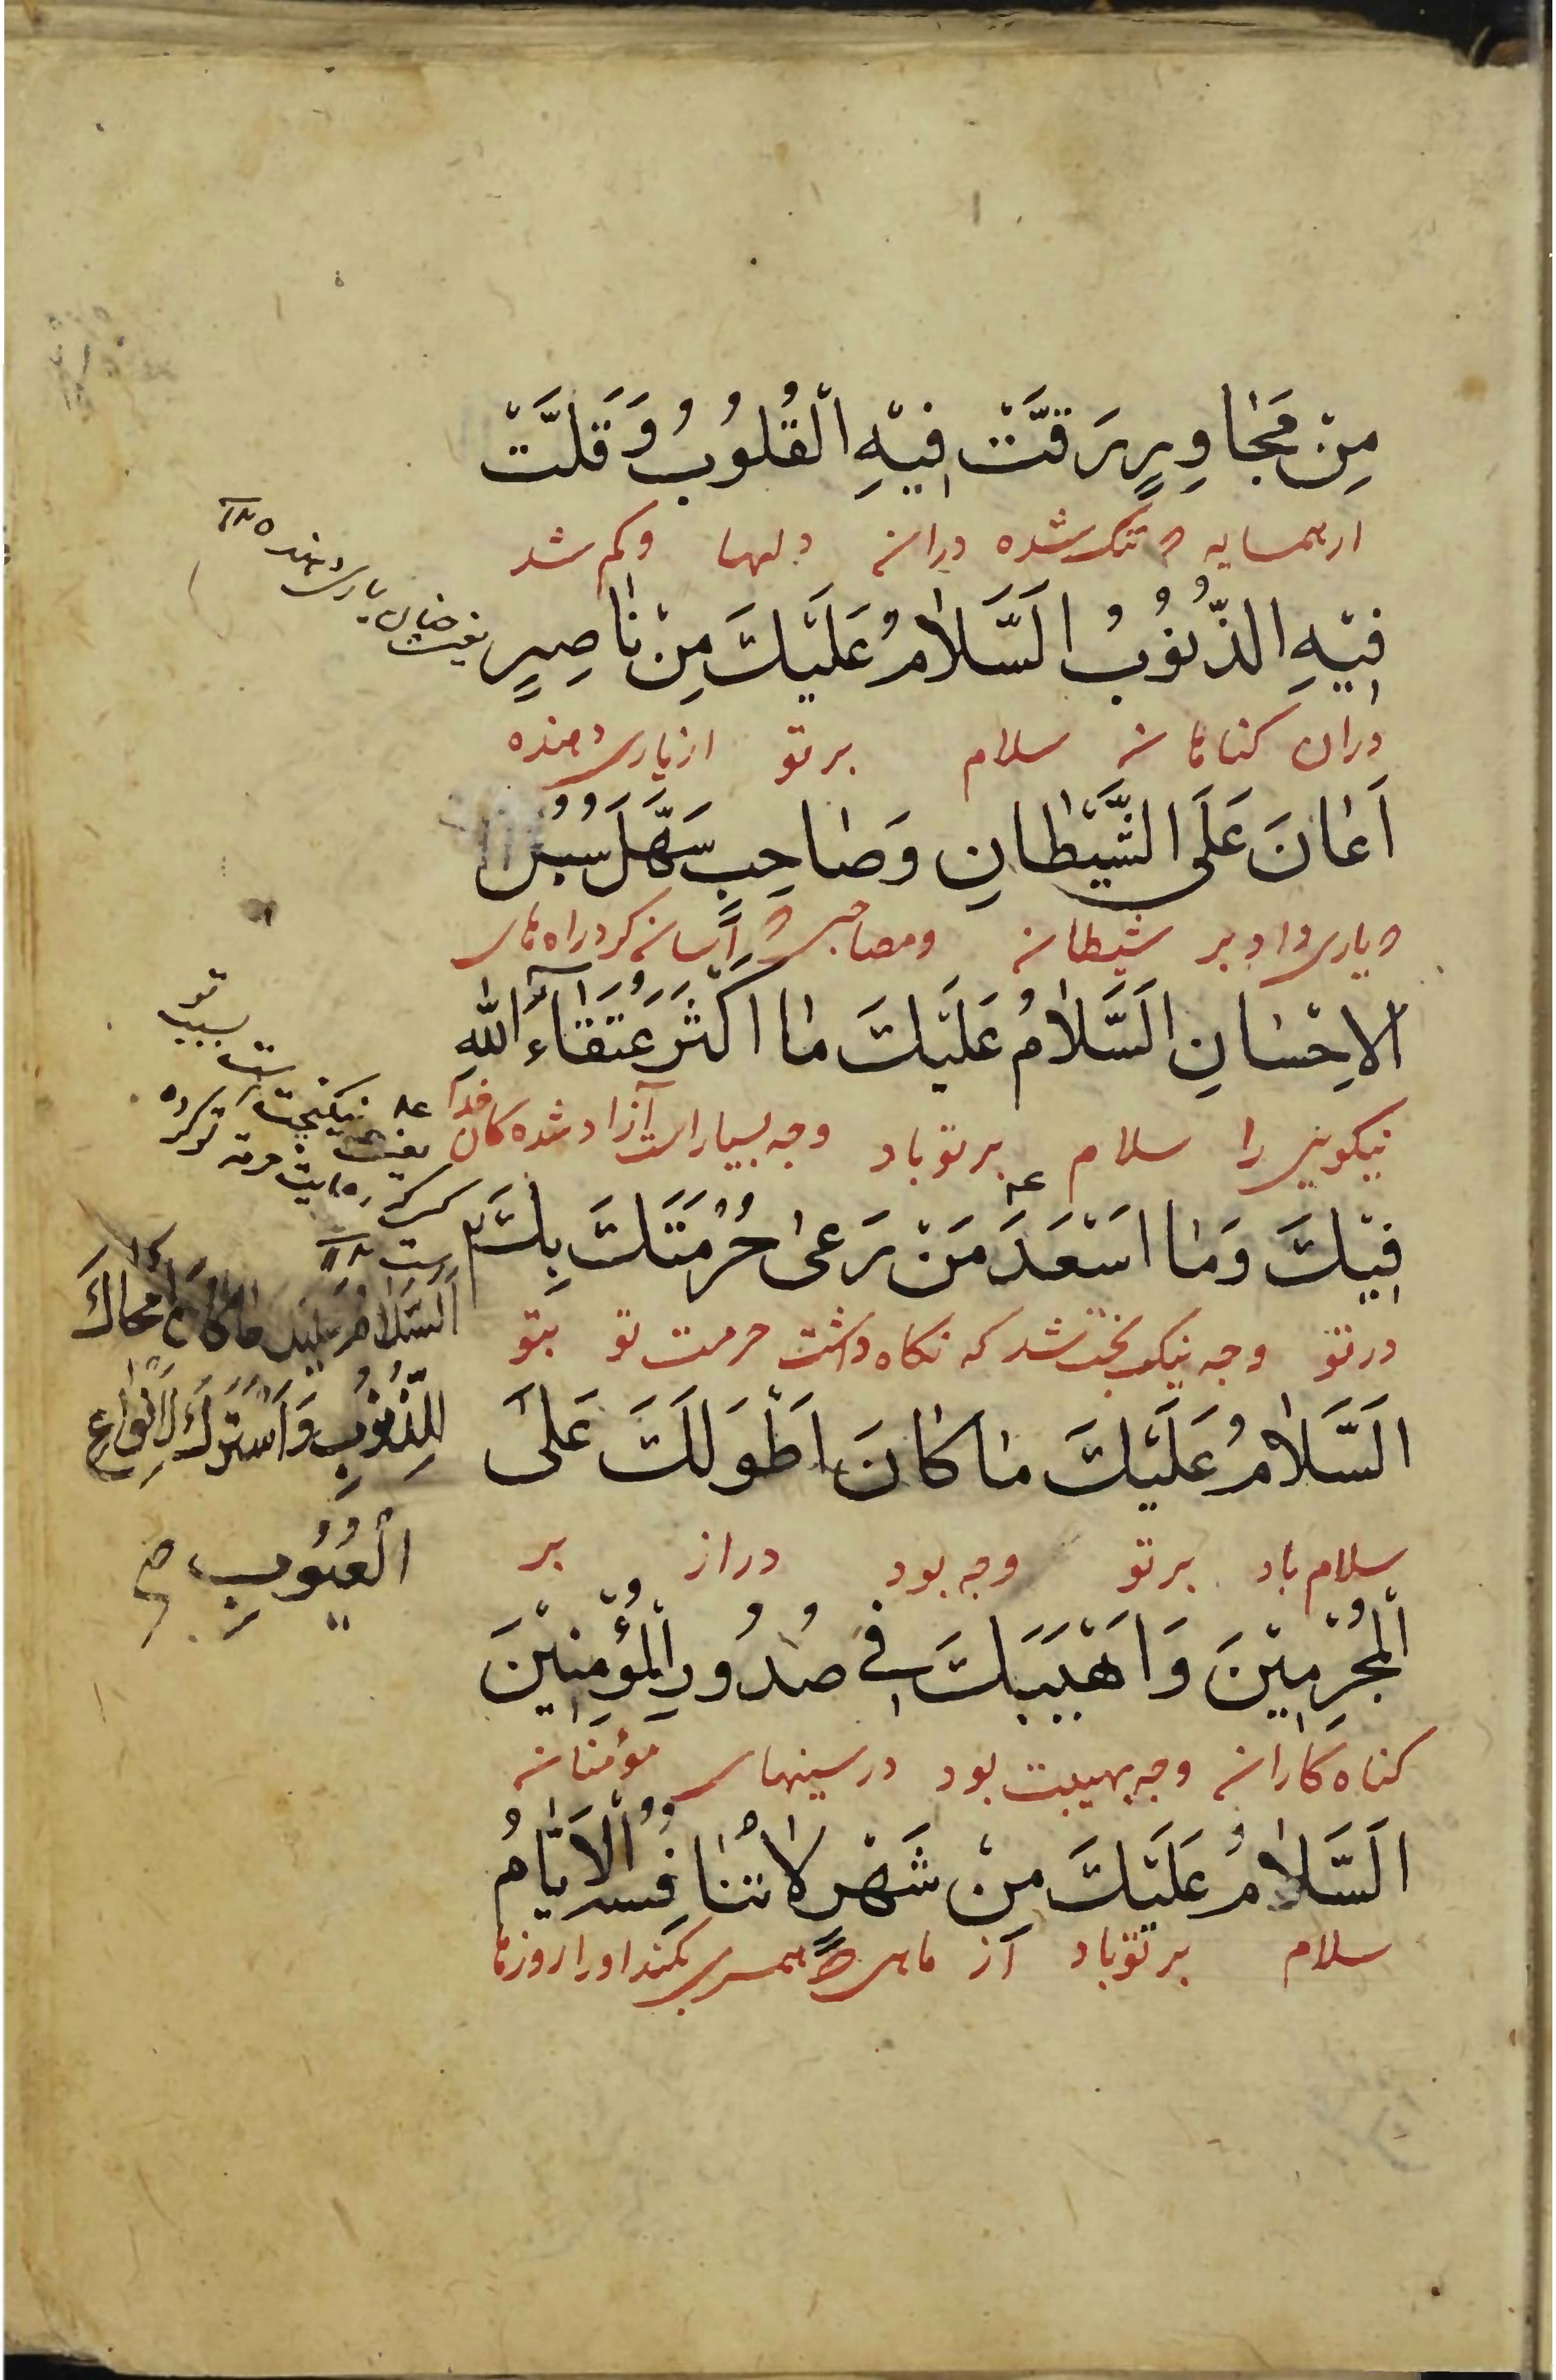 مِنْ مُجَاوِرٍ رَقَّتْ فِيْهِ الْقُلُوبُ وَقَلَّتْ
از همسایه که تنک شده دران دلها وکم شد
فِيْهِ الذُّنُوبُ اَلسَّلَامُ عَلَيْكَ مِنْ نَاصِرٍ
دران کناهان سلام بر تو از یاری دهنده
اَعَانَ عَلَى الشَّيْطَانِ وَصَاحِبٍ سَهَّلَ سُبُلَ
که یاری داد بر شیطان ومصاحبی که آسان کرد راه های
الاِحْسَانِ اَلسَّلَامُ عَلَيْكَ مَا اَكْثَرَ عُتَقَآءَ اللهِ
نیکویی را سلام بر تو باد وچه بسیار است آزاد شده کان خدا
فِيْكَ وَمَا اَسْعَدَ مَنْ رَعىٰ حُرْمَتَكَ بِكَ
در تو وچه نیکبخت شد که نکاه داشت حرمت تو بتو
اَلسَّلَامُ عَلَيْكَ مَا كَانَ اَطْوَلَكَ عَلَى
سلام باد بر تو وچه بود دراز بر
الْمُجْرِمِيْنَ وَاَهْيَبَكَ فِي صُدُورِ الْمُؤْمِنِيْنَ
کناه کاران وچه بهیبت بود در سینهای مؤمنان
اَلسَّلَامُ عَلَيْكَ مِنْ شَهْرٍ لَا تُنَافِسُهُ الْاَيَّامُ
سلام بر تو باد از ماهی که همسری نکند او را روزها
یاری دهنده ١٢
بسبب تو
نیکبخت است
یعنی
کسیکه رعایت حرمة تو کرده
است ١٢
اَلسَّلَامُ عَلَيْكَ مَا كَانَ اَمْحَاكَ
لِلذُّنُوبِ وَاَسْتَرَكَ لِاَنْوَاعِ
الْعُيُوبِ صح